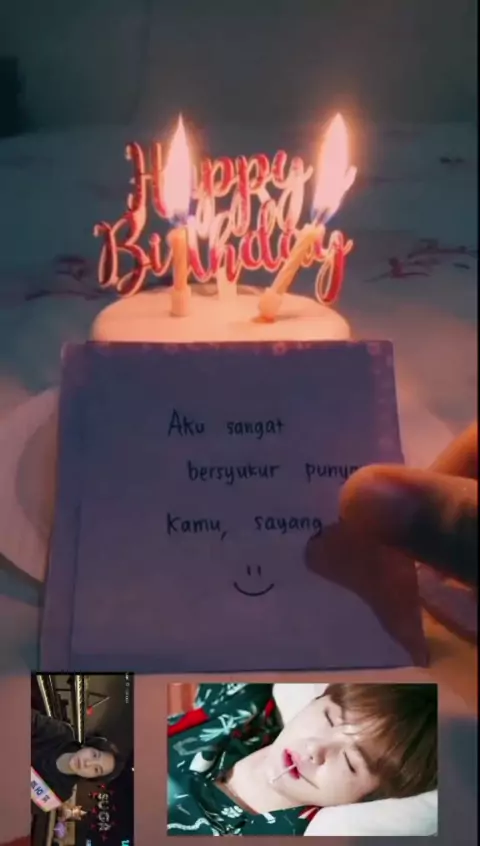 Happy
Birthday
Aku sangat
bersyukur punya
Kamu, sayang
SUGA